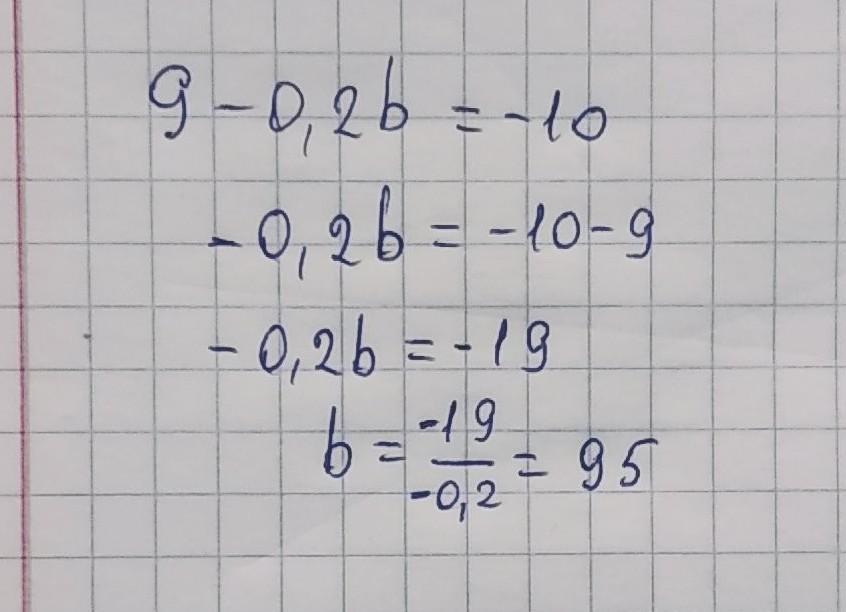 9 - 0,2b = -10
- 0,2b = -10 - 9
- 0,2b = -19
b = \frac{-19}{-0,2} = 95